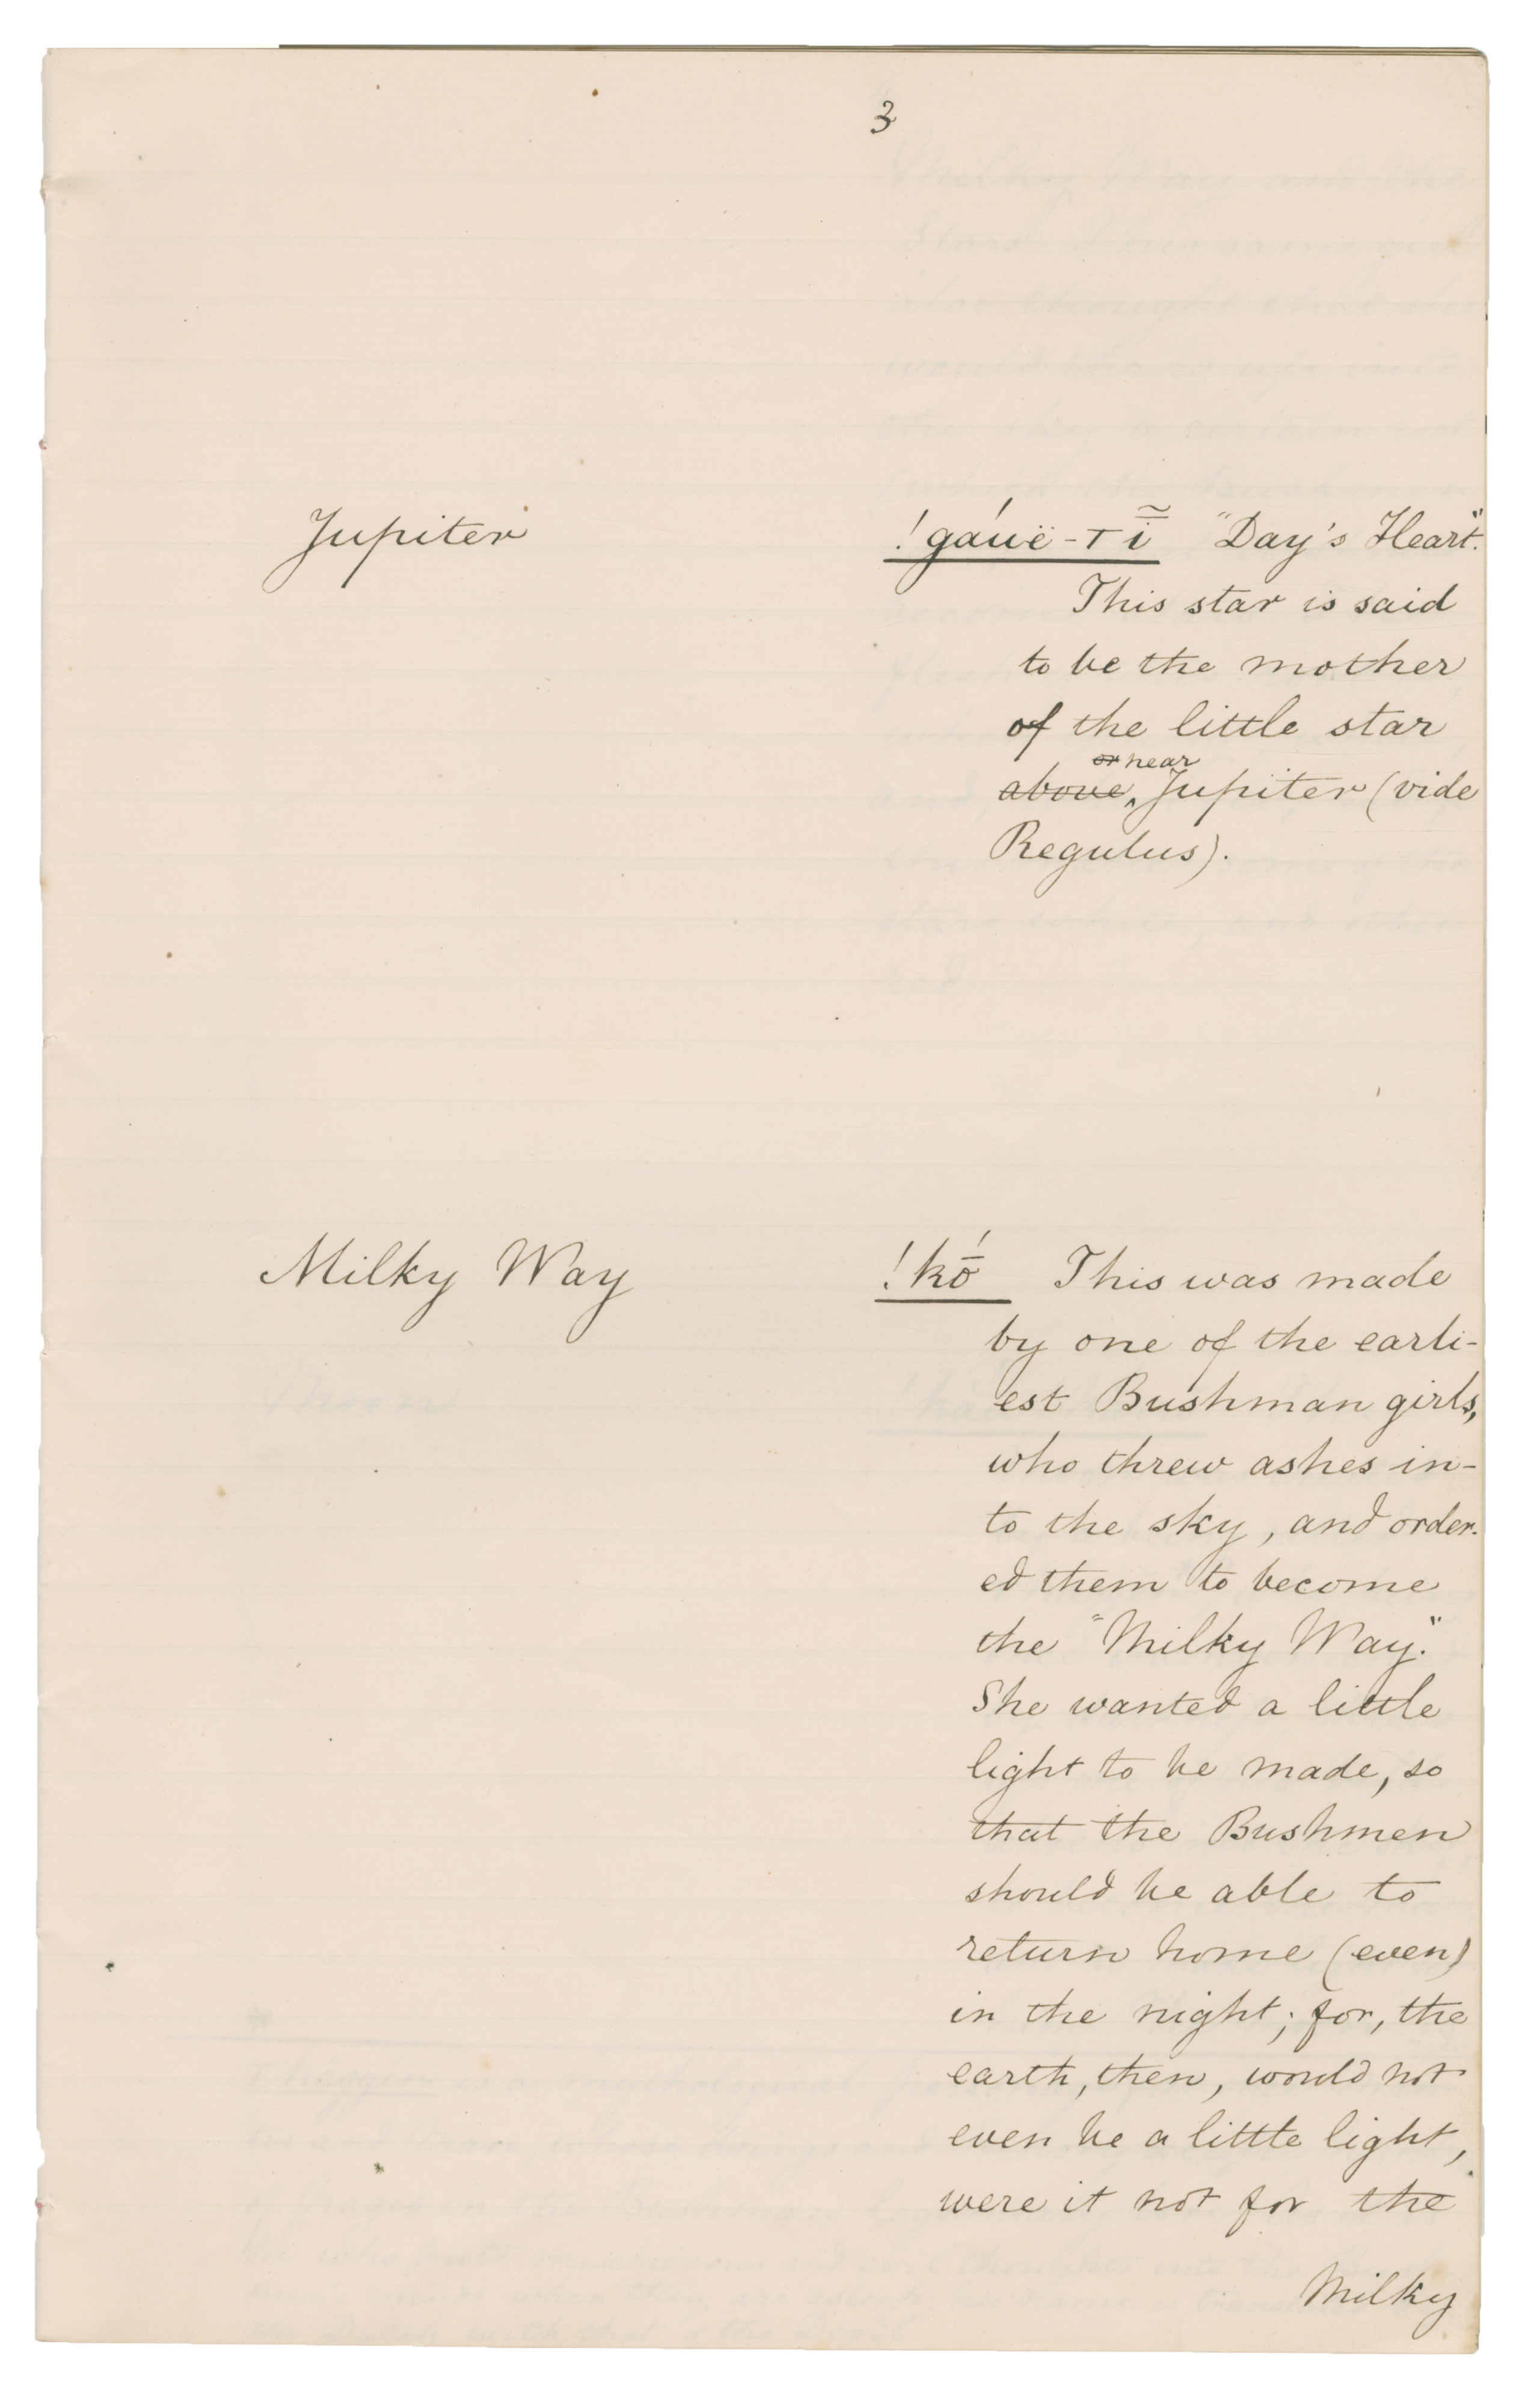 3
Jupiter
!gáuë-τ ī̃ "Day's Heart".
This star is said
to be the mother
of the little star
or near
above, Jupiter (vide
Regulus).
Milky Way
!kṓ This was made
by one of the earli-
est Bushman girls,
who threw ashes in-
to the sky, and order-
ed them to become
the "Milky Way."
She wanted a little
light to be made, so
that the Bushmen
should be able to
return home (even)
in the night; for, the
earth, then, would not
even be a little light,
were it not for the
Milky